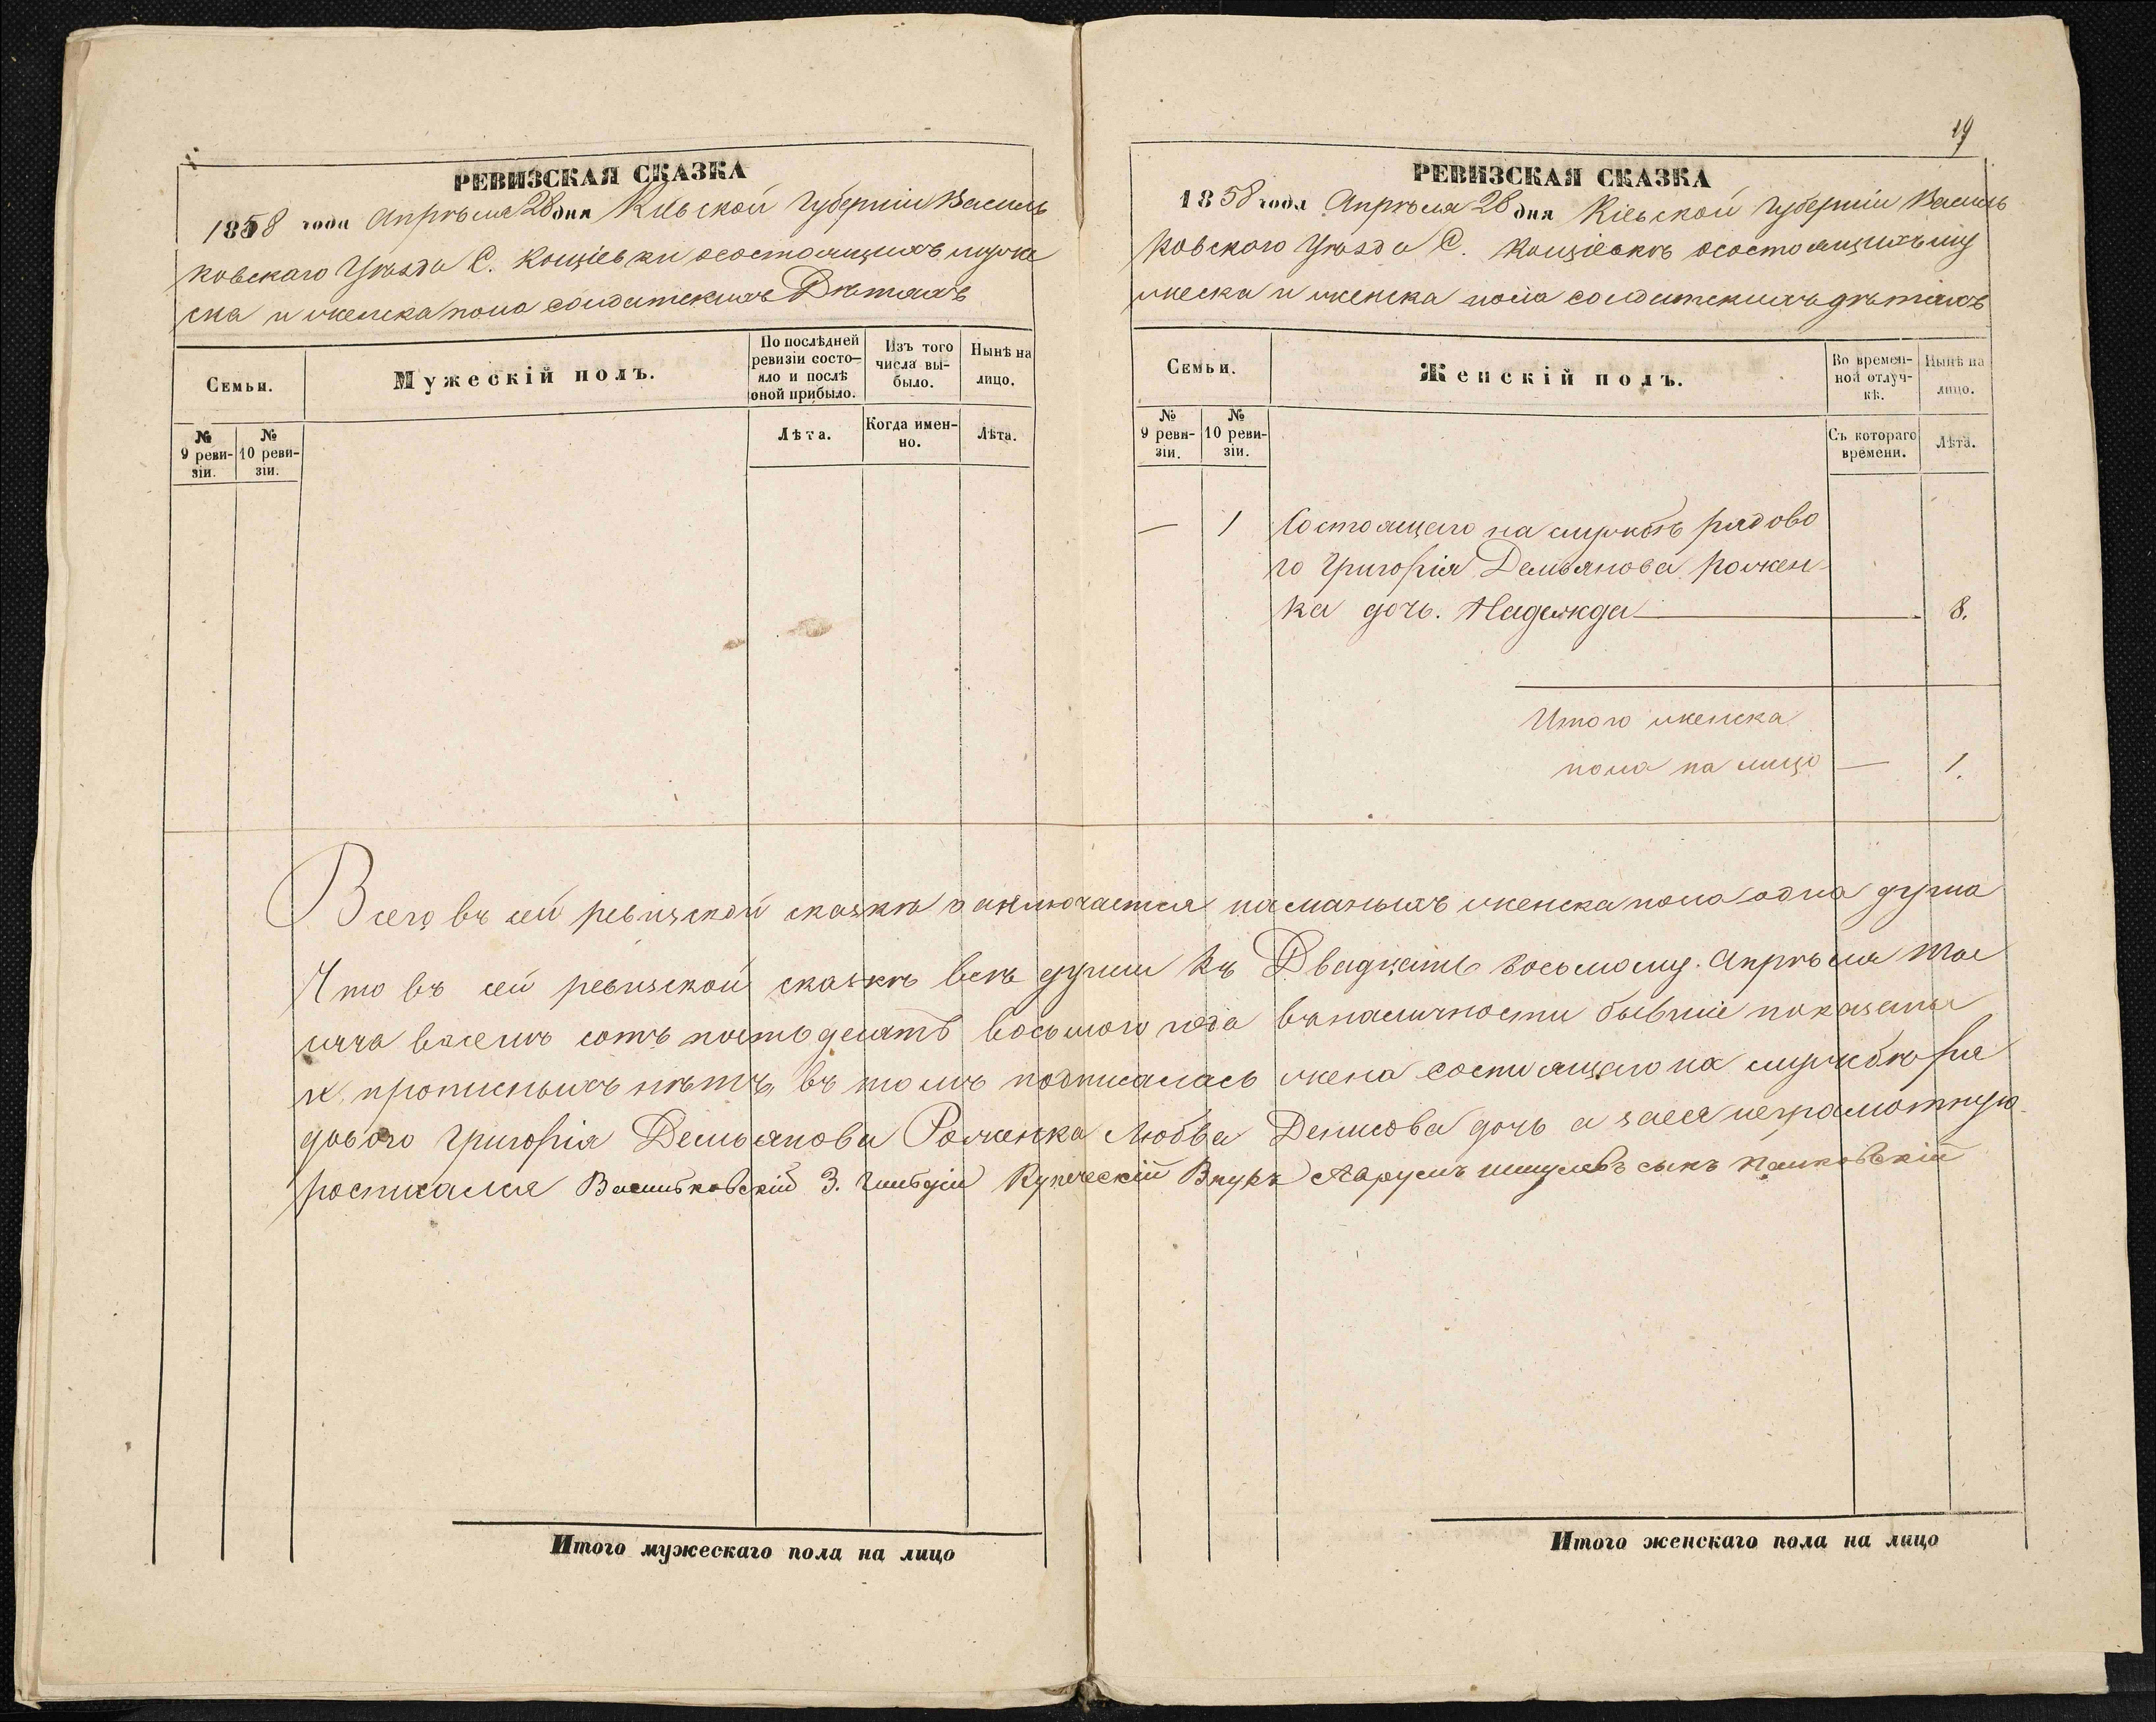 РЕВИЗСКАЯ СКАЗКА
1858 года Апрѣля 28 дня Кіевской Губерніи Василь
ковскаго Уѣзда С. Кощіевки осостоящихъ муже
ска и женска пола солдатскихъ Дѣтяхъ
Семьи.
Мужескій полъ.
По послѣдней
ревизіи состо-
яло и послѣ
оной прибыло.
Изъ того
числа вы-
было.
Нынѣ на
лицо.
№
9 реви-
зіи.
№
10 реви-
зіи.
Лѣта.
Когда имен-
но.
Лѣта.
19
РЕВИЗСКАЯ СКАЗКА
1858 года Апрѣля 28 дня Кіевской Губерніи Василь
ковского Уѣзда С. Кощіевкѣ осостоящихъ му
жеска и женска пола солдатскихъ дѣтяхъ
Семьи.
Женскій полъ.
Во времен-
ной отлуч-
кѣ.
Нынѣ на
лицо.
№
9 реви-
зіи.
№
10 реви-
зіи.
Съ котораго
времени.
Лѣта.
— 1 Состоящего на службѣ рядово
го Григорія Демьянова Ромен-
ка дочь. Надежда — 8.
Итого женска
пола на лицо — 1.
Всего въ сей ревизской сказкѣ заключается наличныхъ женска пола одна душа
Что въ сей ревизской сказкѣ всѣ души къ Двадцать восьмому Апрѣля тыс
яча восемъ сотъ пятьдесятъ восьмого года въ наличности бывшіе показаны
и прописныхъ нѣтъ, въ томъ подписалась жена состоящаго на службѣ ря
дового Григорія Демьянова Роменка Любва Денисова дочь а заея неграмотную
росписался Васильковскій 3. Гильдіи Купеческій Внукъ сынъ
Итого мужескаго пола на лицо
Итого женскаго пола на лицо